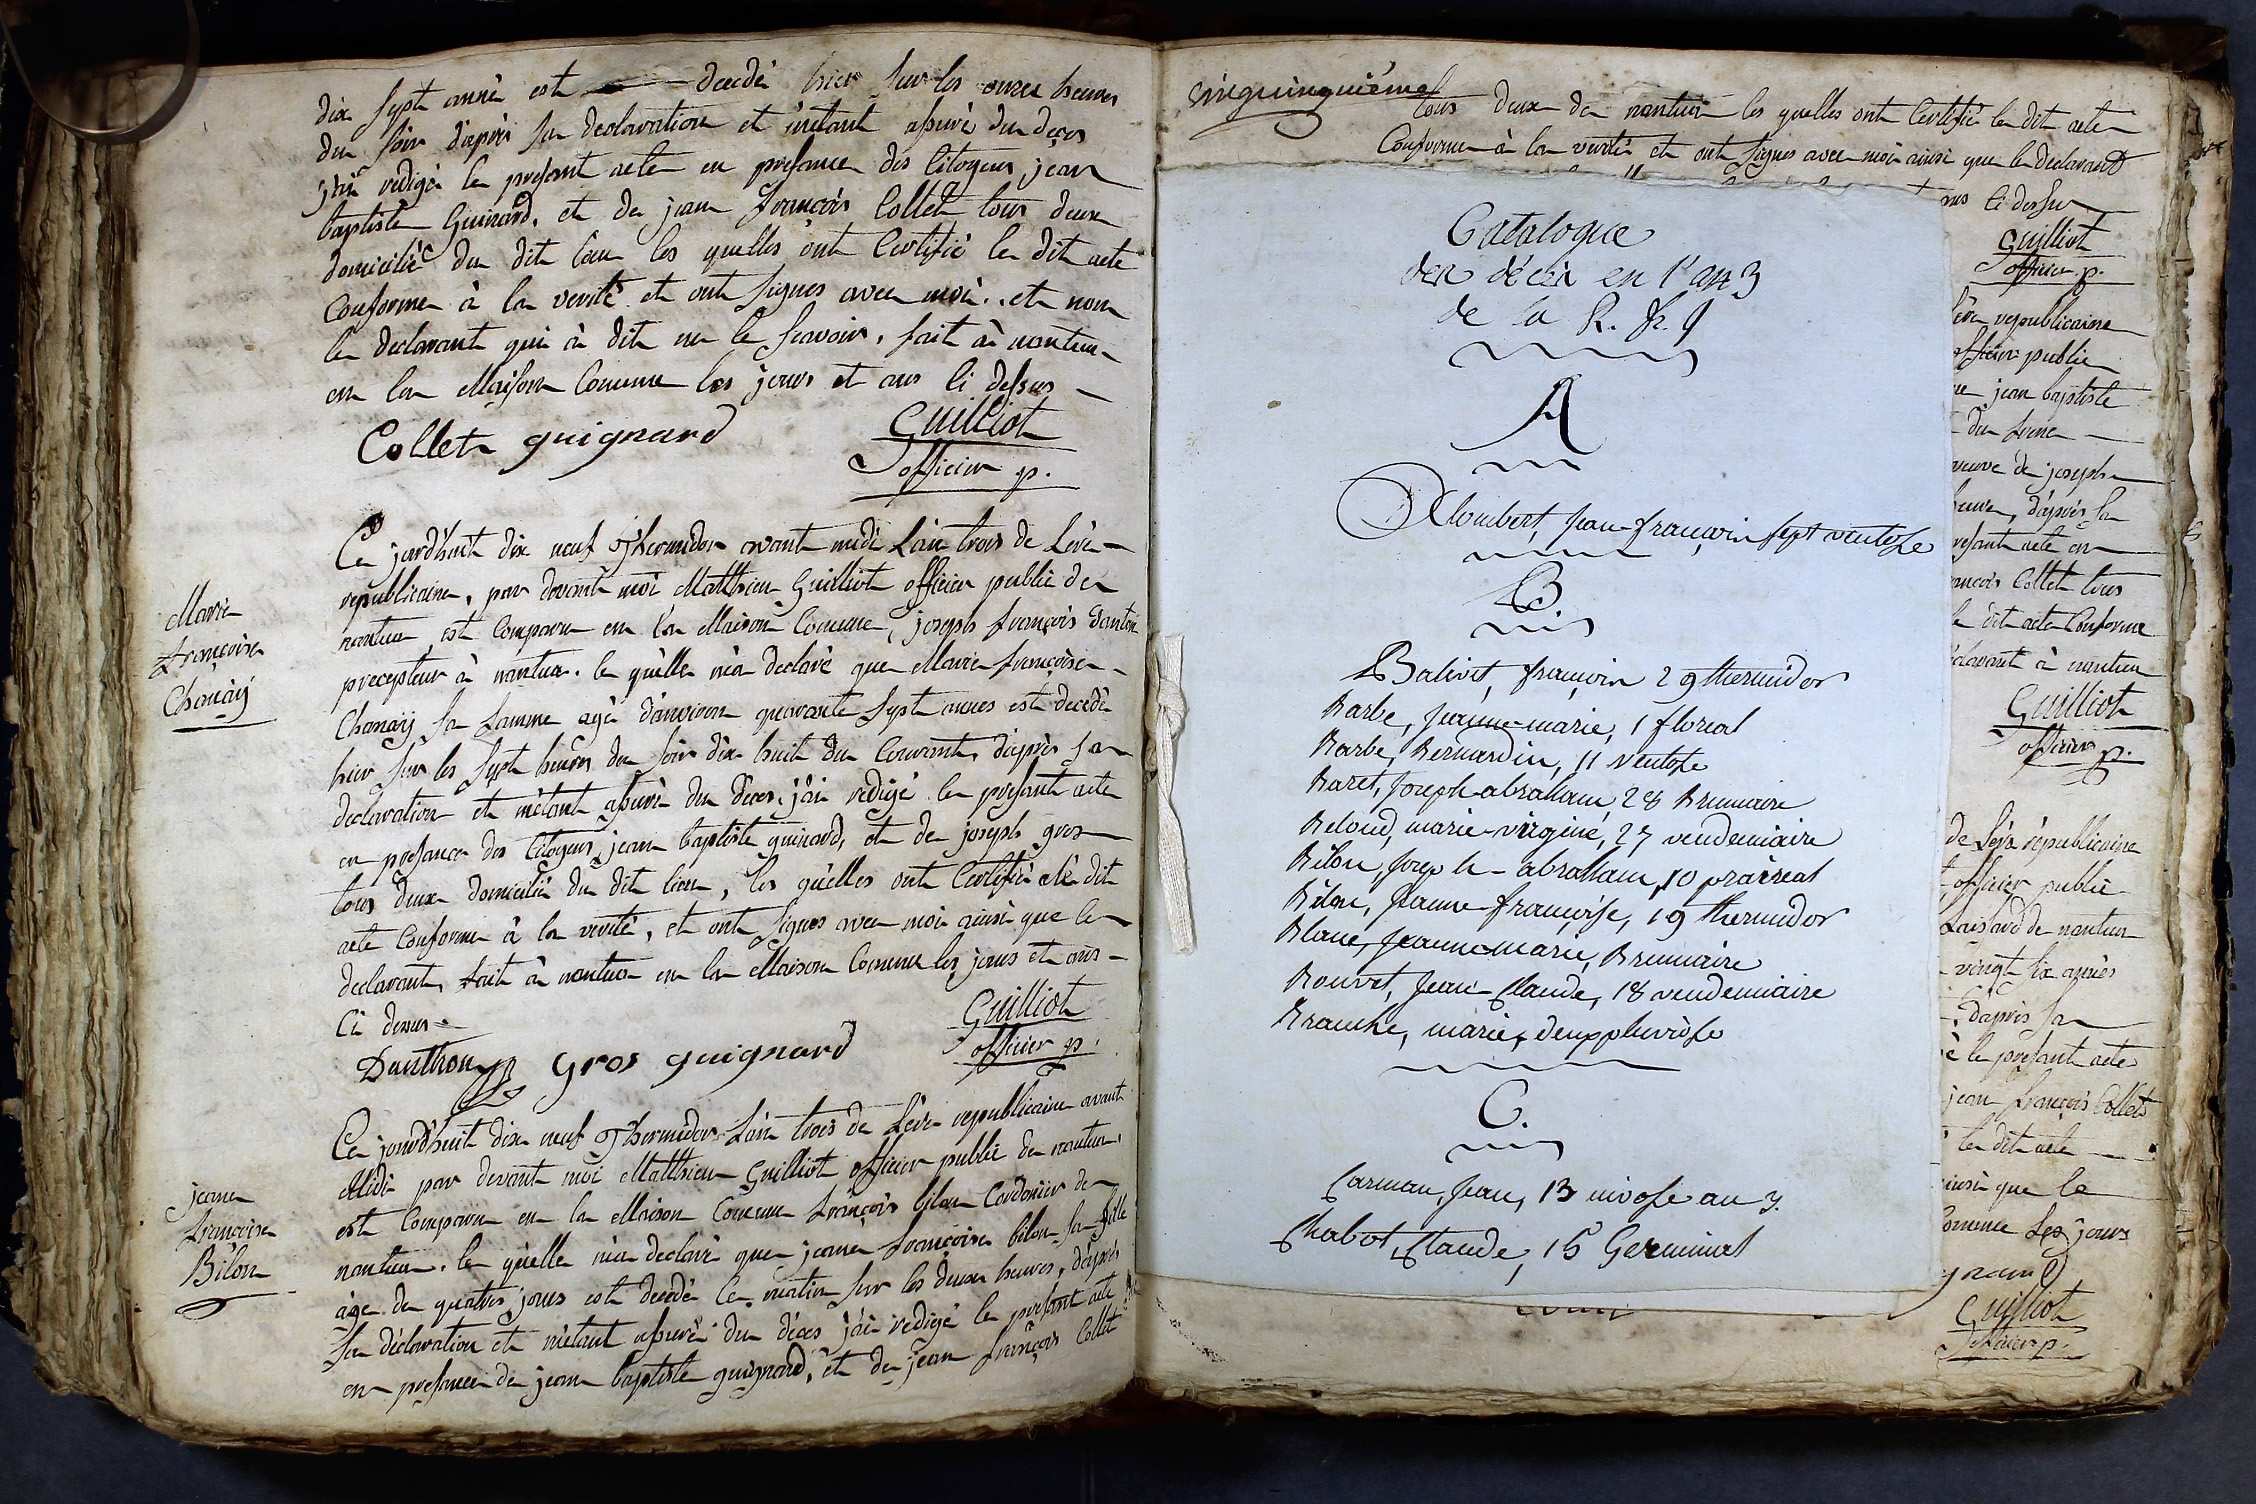 dix sept anné est decedé hier sur les onze heures
du soir d'apres sa declaration et m'etant assuré du deces
j'ai redigé le present acte en presance des Citoyens jean
baptiste Guinard, et de jean françois Collet tous deux
domicilié du dit lieu les quelles ont Certifié le dit acte
Conforme à la verité et ont signes avec moi.. et non
le declarant qui à dit ne le scavoir, fait à nantua
en la Maison Comune les jours et ans Ci dessus
Collet guignard Guilliot
officier p.
Ce jourd'huit dix neuf Thermidor avant midi L'an trois de L'ère
republicaine, par devant moi Matthieu Guilliot officier public de
nantua est Comparu en la Maison Comune, joseph françois Danton
precepteur à nantua. le quelle m'a declaré que Marie françoise
Chanaÿ sa famme agé d'anviron quarante sept annes est decedé
hier sur les sept heures du soir dix huit du Courant, d'après sa
declaration et m'etant assuré du deces, j'ai redigé le presant acte
en presance des Citoyens jean baptiste guinard, et de joseph gros
tous deux domicilié du dit lieu, les quelles ont Certifié le dit
acte Conforme à la verité, et ont signes avec moi ainsi que le
declarant, fait à nantua en la Maison Comune les jours et ans
Ci dessus
Marie
françoise
Chanaÿ
Danthon gros guignard Guilliot
officier p.
Ce jourd'huit dix neuf Thermidor L'an trois de L'ère republicaine avant
Midi par devant moi Matthieu Guilliot officier public de nantua,
est Comparu en la Maison Comune françois bilon Cordonier de
nantua. le quelle m'a declaré que jeane françoise bilon sa fille
age de quatres jours est decedé Ce matin sur les deux heures, d'après
sa déclaration et m'etant assuré du déces j'ai redigé le present acte
en presance de jean baptiste guignard, et de jean françois Collet
jeane
francoise
Bilon
cinquinquiéme
tous deux de nantua les quelles ont Certifié le dit acte
Conforme à la verité et ont signes avec moi ainsi que le declarant
Ci dessus
Guilliot
officier p.
Catalogue
des décès en l'an 3
de la R. fr.
A
Aloubert, Jean-françois sept ventose
B.
Balivet, françois 29 thermidor
Barbe, Jeanne-marie, 1 floreal
Barbe, Bernardin, 11 ventose
Baret, Joseph-abraham, 28 Brumaire
Beloud, marie-virginé, 27 vendemiaire
Bilon, Joseph-abraham, 10 prairéal
Bilon, Jeanne-françoise, 19 thermidor
Blanc, Jeanne-marie, Brumaire
Bouvet, Jean-Claude, 18 vendemiaire
Branche, marie, deux pluviôse
C.
Carman, Jean, 13 nivose an 3.
Chabot, Claude, 15 Germinal
republicaine
officier public
jean baptiste
veuve de joseph
d'après sa
acte en
Collet tous
dit acte Conforme
à nantua
Guilliot
officier p.
de L'ére républicaine
officier public
de nantua
vingt six annés
d'après sa
le presant acte
jean françois Collet
le dit acte
ainsi que le
Comune Les jours
Guilliot
officier p.